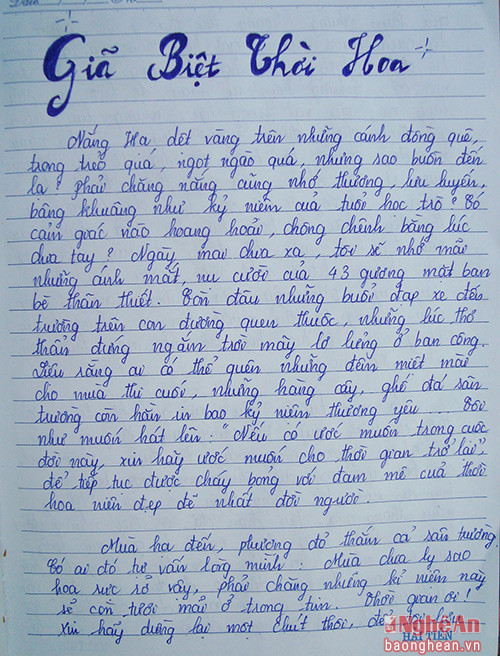 Giã Biệt Thời Hoa
Nắng Hạ dệt vàng trên những cánh đồng quê,
trong trẻo quá, ngọt ngào quá, nhưng sao buồn đến
lạ? Phải chăng nắng cũng nhớ thương, lưu luyến,
bâng khuâng như kỷ niệm của tuổi học trò? Có
cảm giác nào hoang hoải, chông chênh bằng lúc
chia tay? Ngày mai chia xa, tôi sẽ nhớ mãi
những ánh mắt, nụ cười của 43 gương mặt bạn
bè thân thiết. Còn đâu những buổi đạp xe đến
trường trên con đường quen thuộc, những lúc thơ
thẩn đứng ngắm trời mây lơ lửng ở ban công.
Liệu rằng ai có thể quên những đêm miệt mài
cho mùa thi cuối, những hàng cây, ghế đá sân
trường còn hằn in bao kỷ niệm thương yêu ... Tôi
như muốn hát lên: "Nếu có ước muốn trong cuộc
đời này, xin hãy ước muốn cho thời gian trở lại",
để tiếp tục được cháy bỏng với đam mê của thời
hoa niên đẹp đẽ nhất đời người.
Mùa hạ đến, phượng đỏ thắm cả sân trường
Có ai đó tự vấn lòng mình: Mùa chia ly sao
hoa rực rỡ vậy, phải chăng những kỉ niệm này
sẽ còn tươi mãi ở trong tim. Thời gian ơi!
xin hãy dừng lại một chút thôi, để tôi
NghệAn
HẢI TIẾN
baonghean.vn